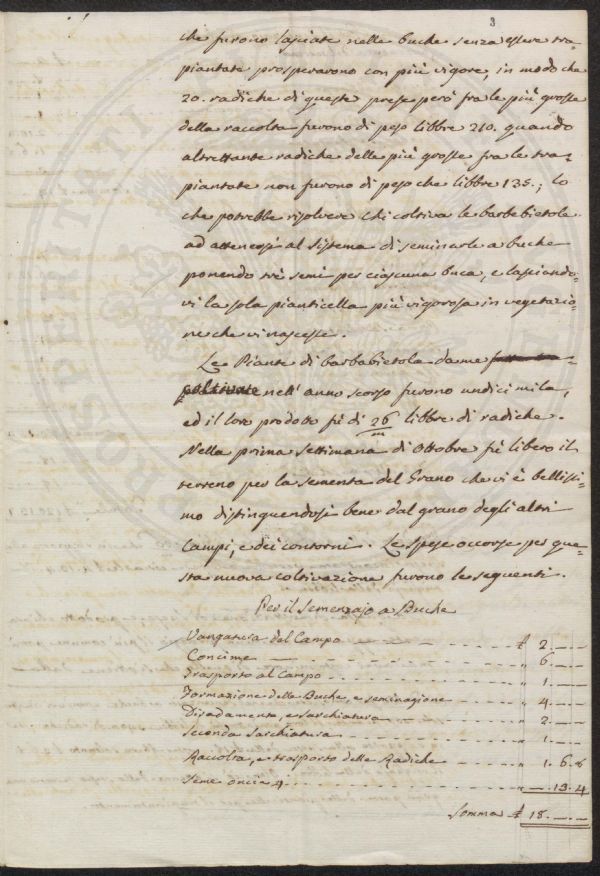 3
che furono lasciate nelle buche senza essere tra=
piantate prosperarono con più vigore, in modo che
20. radiche di queste prese però fra le più grosse
della raccolta furono di peso libbre 210. quando
altrettante radiche delle più grosse fra le tra=
piantate non furono di peso che libbre 135.; lo
che potrebbe risolvere chi coltiva le barbebietole
ad attenersi al sistema di seminarle a buche
ponendo trè semi per ciascuna buca, e lasciando=
vi la sola pianticella più vigorosa in vegetazio=
ne che vi nascesse.
Le Piante di barbabietola da me
coltivate nell' anno scorso furono undici mila,
ed il loro prodotto fù di 26/m libbre di radiche.
Nella prima settimana di Ottobre fù libero il
terreno per la sementa del Grano che vi è bellissi=
mo distinguendosi bene dal grano degli altri
Campi, e dei contorni. Le spese occorse per que=
sta nuova coltivazione furono le seguenti.
Per il Semenzajo a Buche
Vangatura del Campo £ 2. — —
Concime " 6. — —
Trasporto al Campo " 1. — —
Formazione delle Buche, e seminagione " 4. — —
Diradamento, e sarchiatura " 2. — —
Seconda sarchiatura " 1. — —
Raccolta, e trasporto delle Radiche " 1. 6. 8
Seme oncie 4 " —. 13. 4
Somma £ 18. — —
PROSPERITATI